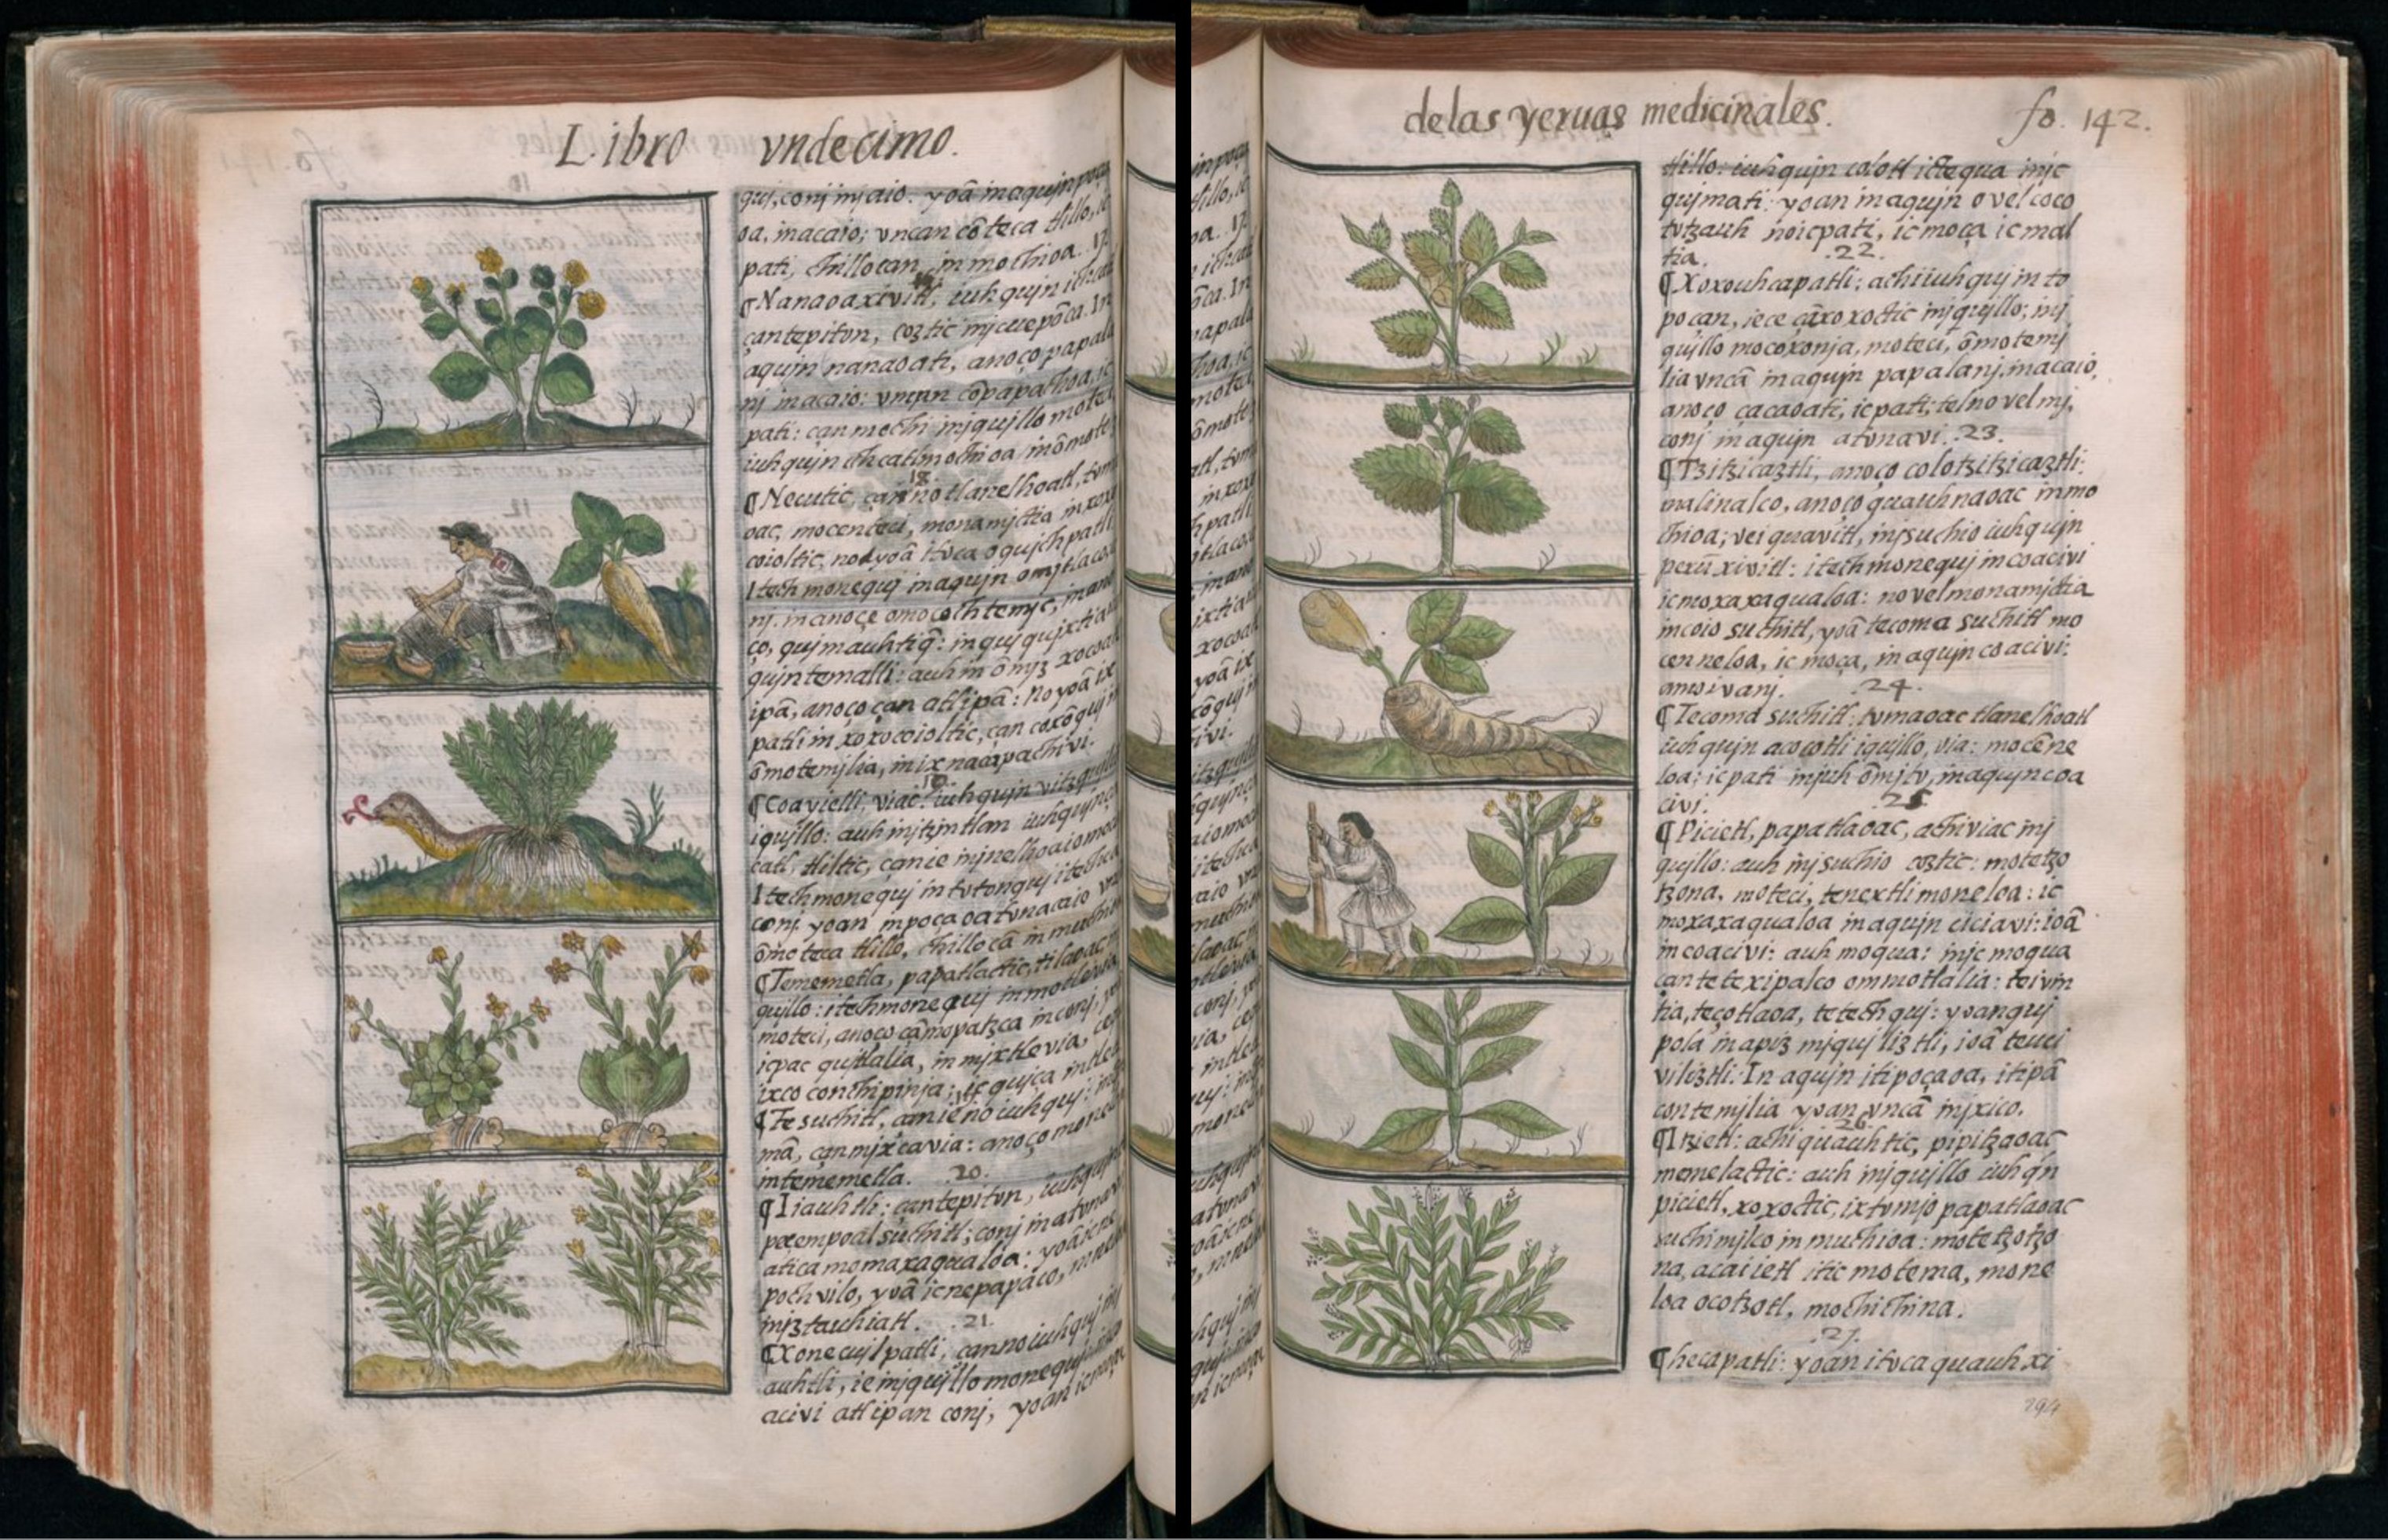 Libro vndecimo.
quj, conj injaio. yoã inaqujn poça
oa, inacaio; vncan cõteca tlillo, ic
pati, tlillocan in mochioa. 17.
¶ Nanaoaxivitl, iuhqujn
çantepiton, coztic injcueponca. In
aqujn nanaoati, anoço papala
nj inacaio: vncan cõpapachoa, ic
pati: çan mochi injqujllo moteci
iuhqujn in mochioa inõmote
18
¶ Necutic, çan no tlanelhoatl, tom
oac, mocenteci, monamjctia in xoxo
coioltic, no yoã itoca oqujchpatli
Itech monequj inaqujn omjtlaco
nj. in anoçe omococh temjc, in ano
ço, qujmauhtiq̃: in quj qujxtia
qujn temalli: auh in õnjz xocoa
ipã, anoço çan atl ipã: No yoã ix
patli in xoxocoioltic, çan coxõquj
õmotemjlia, in ixnacapachivi.
19
¶ Coavielli, viac: iuhqujn vitzqujl
iqujllo: auh injtzintlan iuhqujn
catl, tliltic, çan ie injnelhoaio mo
Itech monequj in totonquj itech ca
conj. yoan in poçaoa tonacaio vn
õmoteca tlillo, tlillocã in muchi
¶ Tememetla, papatlactic, tilaoac
qujllo: itech monequj in motlevia,
moteci, anoço çã mopatzca in conj,
icpac qujtlalia, in mjxtlevia,
ixco conchipinja; ic qujça in tle
¶ Tesuchitl, çan ie no iuhquj:
mã, çan mjxcavia: anoço mone
in tememetla. 20.
¶ Iiauhtli; çantepiton, iuhqujn
pexempoalsuchitl; conj in atonavi
atica momaxaqualoa: yoã ic
pochvilo, yoã ic nepapaco,
injztauhiatl. 21.
¶ Xonecuilpatli, çan no iuhquj in
auhtli, ie injqujllo monequj
acivi atl ipan conj, yoan ic moça
delas yeruas medicinales. fo. 142.
tlillo: iuhqujn colotl ictequa injc
qujmati: yoan inaqujn ovel coco
totzauh noicpati, ic moça ic mal
tia. .22.
¶ Xoxouhcapatli: achi iuhquj in to
pocan, iece çã xoxoctic injqujllo; inj
qujllo mocoxonja, moteci, õmotemj
lia vncã inaqujn papalanj. inacaio,
anoço çacaoati, ic pati; tel no vel mj,
conj inaqujn atonavi. .23.
¶ Tzitzicaztli, anoço colotzitzicaztli:
malinalco, anoço quauhnaoac in mo
chioa; vei quavitl, injsuchio iuhqujn
perũ xivitl: itech monequj in coacivi
ic moxaxaqualoa: no vel monamjctia
in coio suchitl, yoã tecoma suchitl mo
cenneloa, ic moça, in aqujn coacivi:
amoivanj. .24.
¶ Tecoma suchitl: tomaoac tlanelhoatl
iuhqujn acocotli iqujllo, via: mocẽne
loa; ic pati injuh õmjto, inaqujn coa
civi. .25.
¶ Picietl, papatlaoac, achi viac inj
qujllo: auh injsuchio coztic: motetzo
tzona, moteci, tenextli moneloa: ic
moxaxaqualoa inaqujn ciciavi: ioã
in coacivi: auh moqua: injc moqua
çan tetexipalco ommotlalia: teivin
tia, teçotlaoa, tetech quj: yoan quj
polã in apiz mjqujliztli, ioã teuci
viliztli. In aqujn itipoçaoa, itipã
contemjlia yoan vncã injxico.
26
¶ Itzietl: achi quauhtic, pipitzaoac
memelactic: auh injqujllo iuhqn
picietl, xoxoctic, ixtomjo papatlaoac
suchimjlco in muchioa: motetzotzo
na, acaiietl itic motema, mone
loa ocotzotl, mochichina.
.27.
¶ hecapatli: yoan itoca quauhxi
294